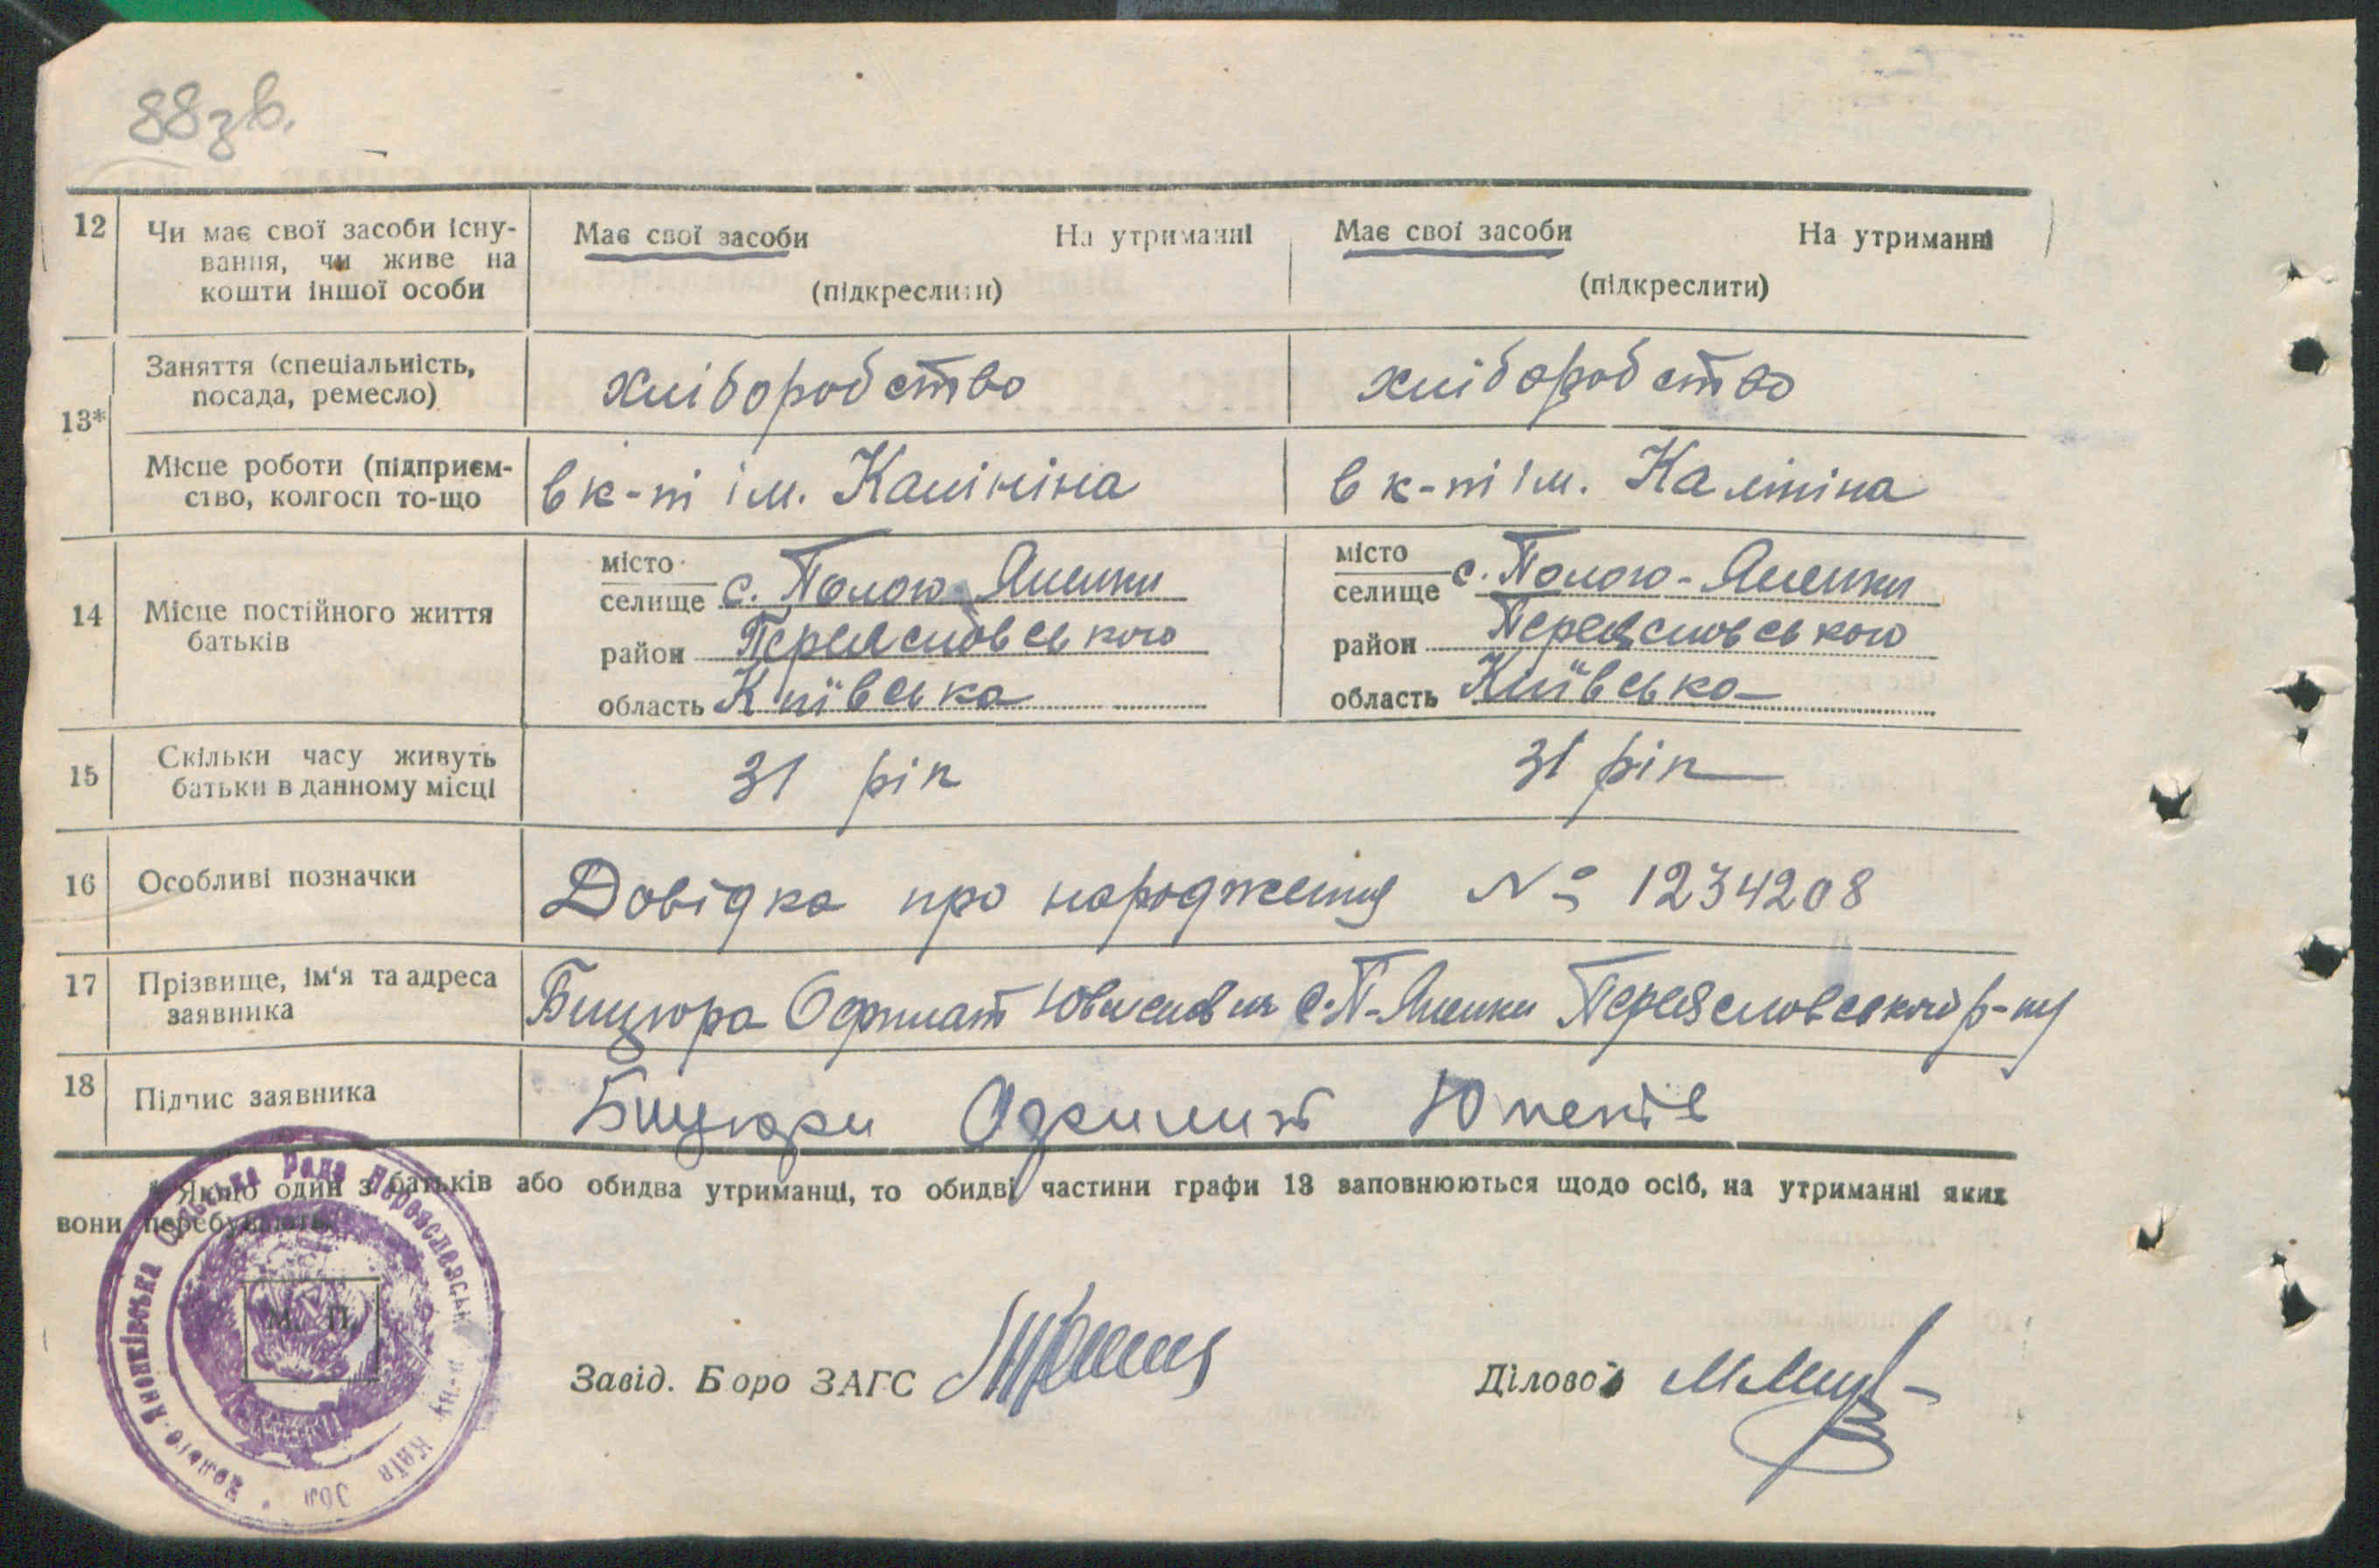 88зв.
12 Чи має свої засоби існу-
вання, чи живе на
кошти іншої особи
Має свої засоби На утриманні
(підкреслити)
Має свої засоби На утриманні
(підкреслити)
13* Заняття (спеціальність,
посада, ремесло)
хліборобство
хліборобство
Місце роботи (підприєм-
ство, колгосп то-що
в к-пі ім. Калініна
в к-пі ім. Калініна
14 Місце постійного життя
батьків
місто
селище с. Полого-Яненки
район Переяславського
область Київська
місто
селище с. Полого-Яненки
район Переяславського
область Київська
15 Скільки часу живуть
батьки в данному місці
31 рік
31 рік
16 Особливі позначки
Довідка про народження № 1234208
17 Прізвище, ім'я та адреса
заявника
Бицюра с. П-Яненки Переяславського р-ну
18 Підпис заявника
Бицюра
* Якщо один з батьків або обидва утриманці, то обидві частини графи 13 заповнюються щодо осіб, на утриманні яких
вони перебувають.
М. П.
Завід. Бюро ЗАГС
Діловод